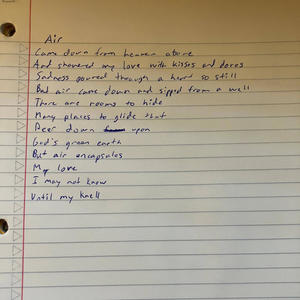 Air
Came down from heaven above
And showered my love with kisses and doves
Sadness poured through a heart so still
But air came down and sipped from a well
There are rooms to hide
Many places to glide that
Peer down upon
God's green earth
But air encapsules
My love
I may not know
Until my knell